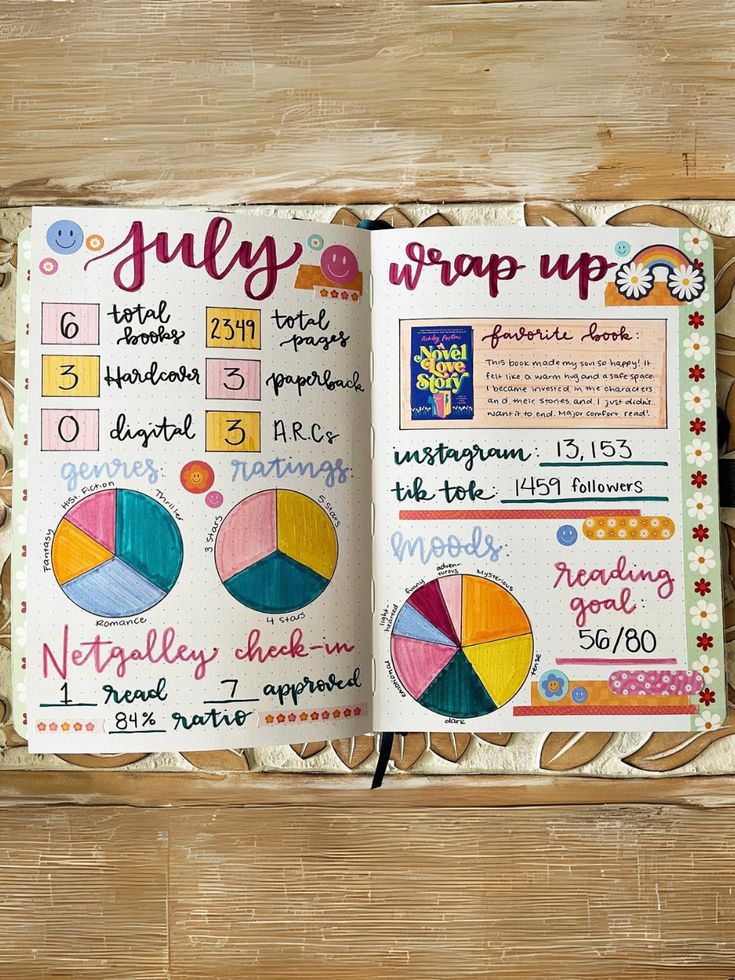 July
6 total books
2349 total pages
3 Hardcover
3 paperback
0 digital
3 A.R.Cs
genres:
Hist. Fiction
Thriller
Fantasy
Romance
ratings:
3 stars
5 stars
4 stars
Netgalley check-in
1 read 7 approved
84% ratio
wrap up
A Novel Love Story
favorite book:
This book made my soul so happy! It
felt like a warm hug and a safe space.
I became invested in the characters
and their stories and I just didn't
want it to end. Major comfort read!
instagram: 13,153
tik tok: 1459 followers
moods:
light-hearted
funny
adventurous
mysterious
emotional
dark
tense
reading
goal:
56/80